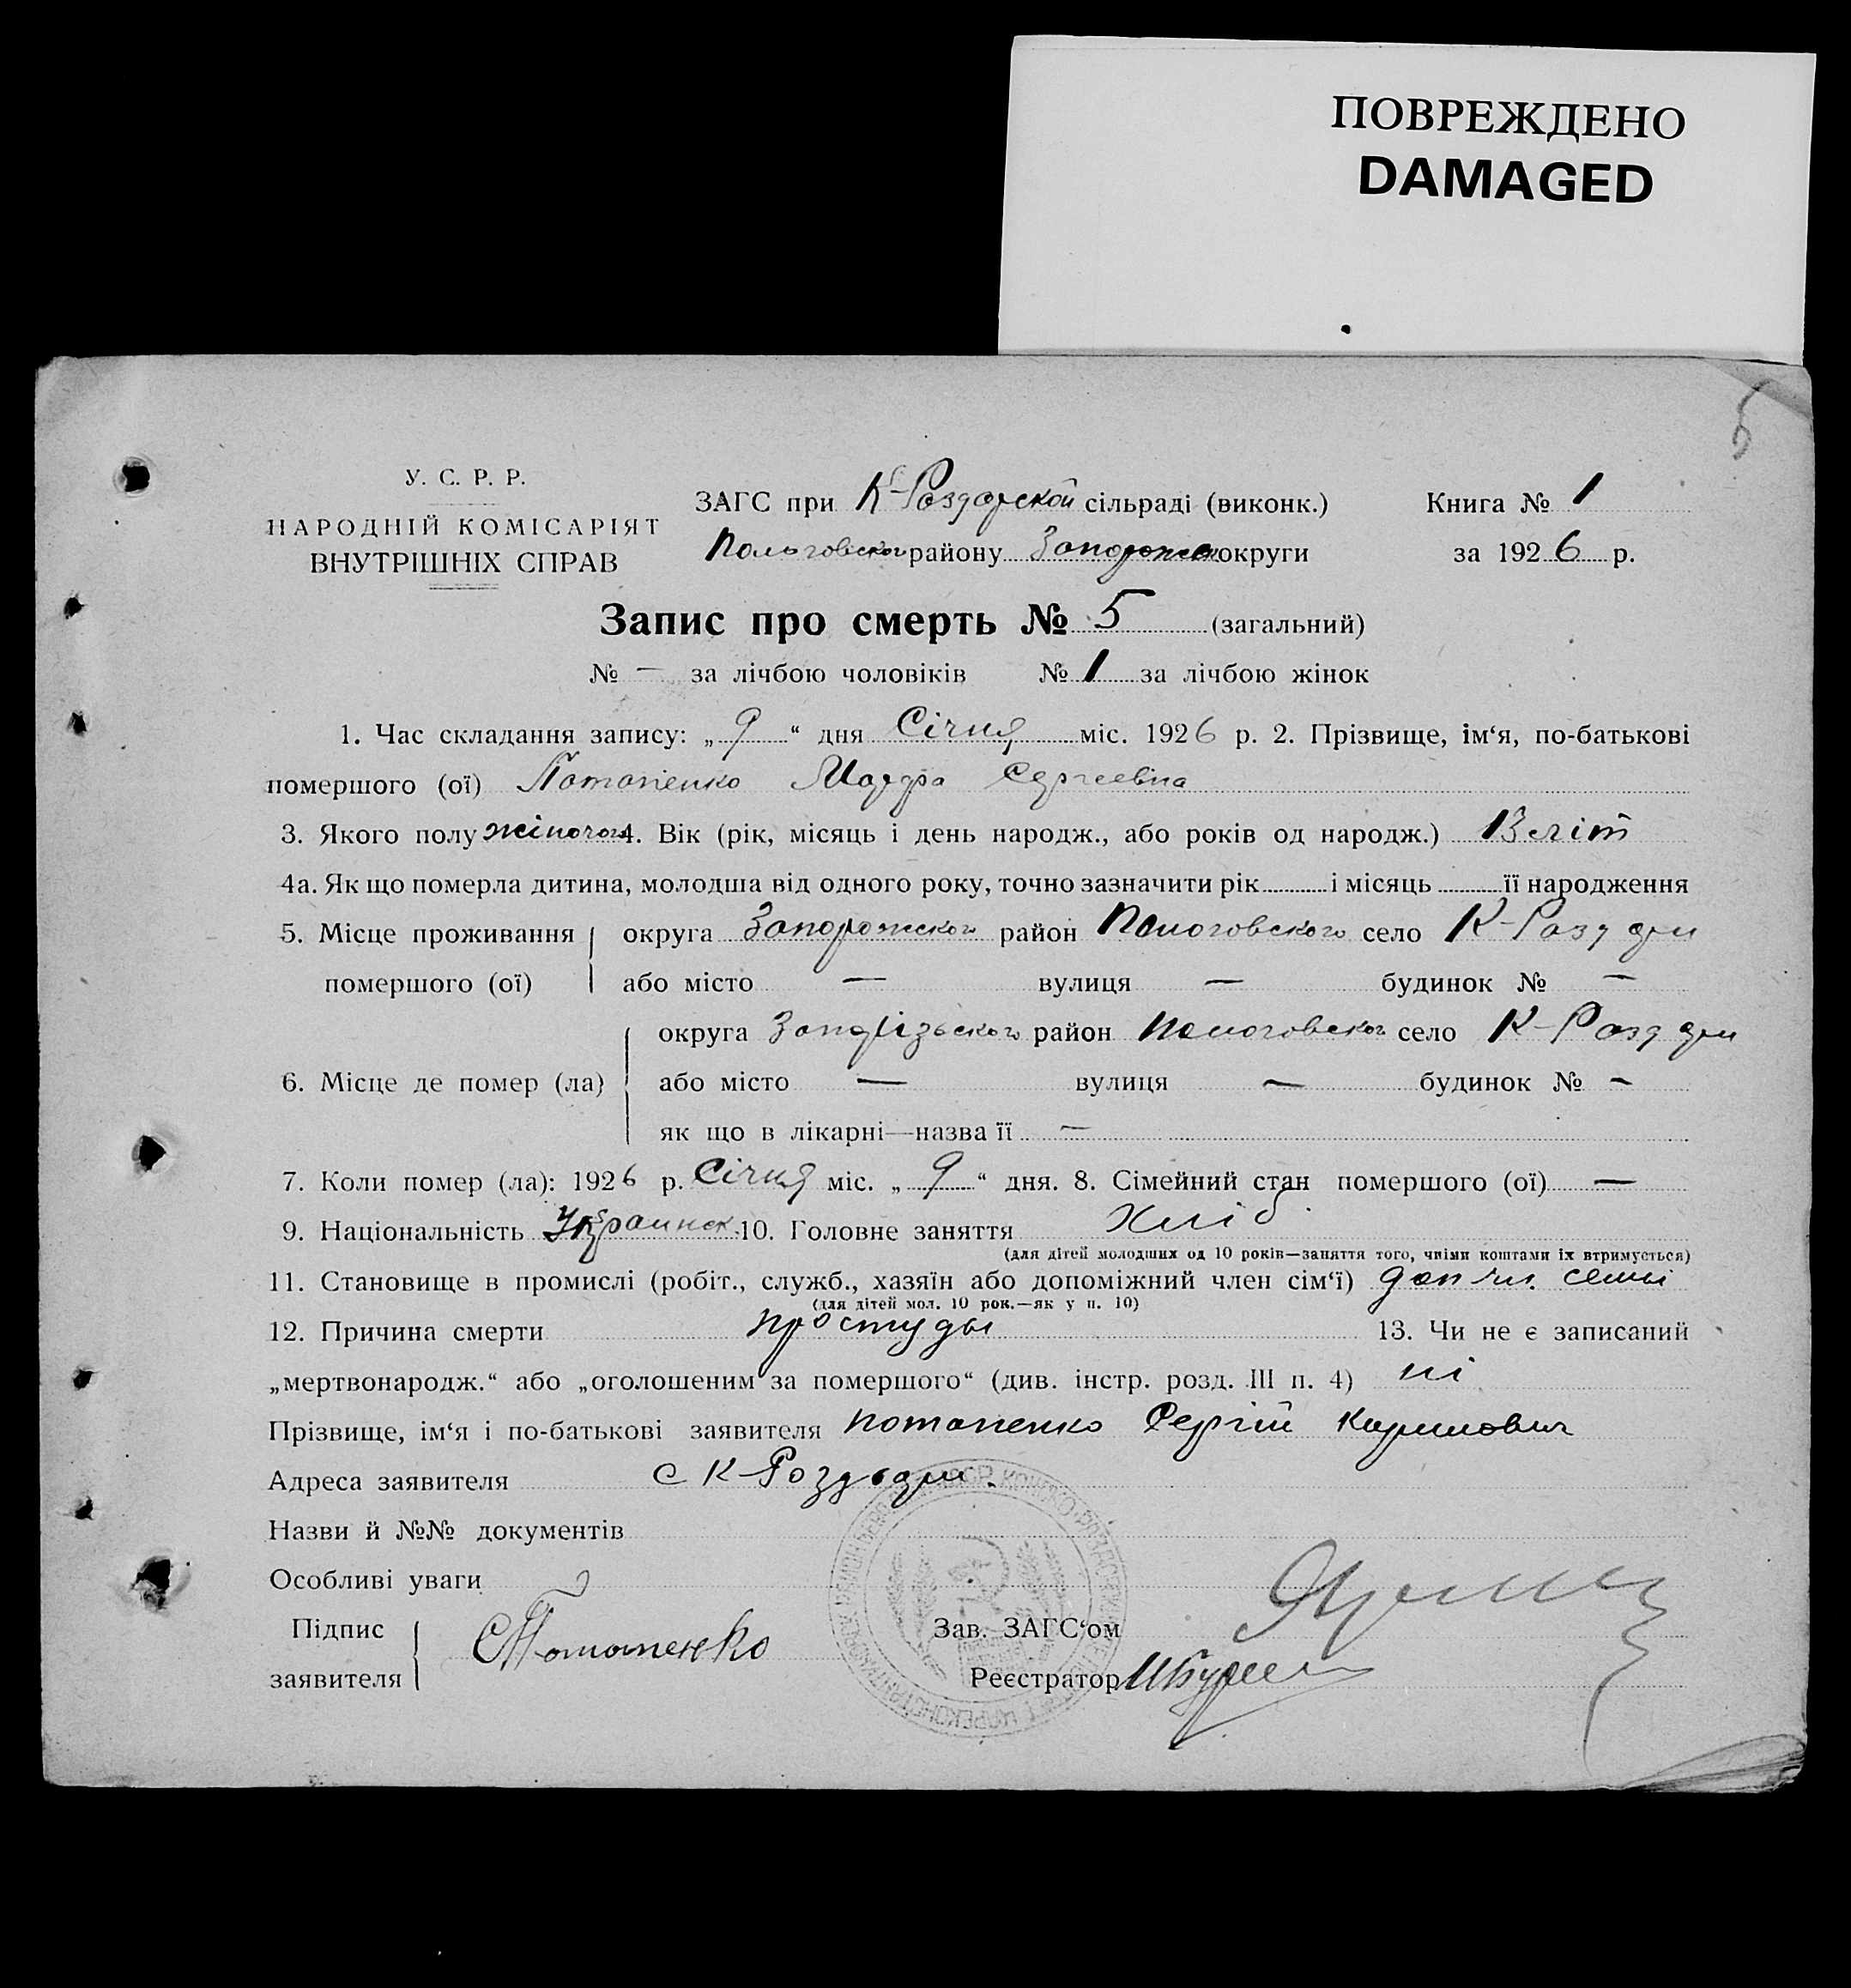 ПОВРЕЖДЕНО
DAMAGED
5
У. С. Р. Р.
НАРОДНІЙ КОМІСАРІЯТ
ВНУТРІШНІХ СПРАВ
ЗАГС при К-Раздорской сільраді (виконк.)
району округи
Книга № 1
за 1926 р.
Запис про смерть № 5 (загальний)
№ — за лічбою чоловіків № 1 за лічбою жінок
1. Час складання запису: „ 9 “ дня Січня міс. 1926 р. 2. Прізвище, ім‘я, по-батькові
помершого (ої) Потапенко Сергеевна
3. Якого полу жіночого 4. Вік (рік, місяць і день народж., або років од народж.) 13 літ
4а. Як що померла дитина, молодша від одного року, точно зазначити рік і місяць її народження
5. Місце проживання округа Запорожского район Пологовского село К-Раздоры
помершого (ої) або місто — вулиця — будинок № —
округа район Пологовского село К-Раздоры
6. Місце де помер (ла) або місто — вулиця — будинок № —
як що в лікарні—назва її —
7. Коли помер (ла): 1926 р. Січня міс. „ 9 “ дня. 8. Сімейний стан помершого (ої) —
9. Національність Украинск. 10. Головне заняття Хліб.
(для дітей молодших од 10 років—заняття того, чиїми коштами їх втримується)
11. Становище в промислі (робіт., служб., хазяїн або допоміжний член сім‘ї) доп чл. семьі
(для дітей мол. 10 рок.—як у п. 10)
12. Причина смерти простуды 13. Чи не є записаний
„мертвонародж.“ або „оголошеним за помершого“ (див. інстр. розд. III п. 4) ні
Прізвище, ім‘я і по-батькові заявителя Потапенко Сергій
Адреса заявителя с К-Роздоры.
Назви й №№ документів
Особливі уваги
Підпис
заявителя
СПотапенко
Зав. ЗАГС‘ом
Реєстратор